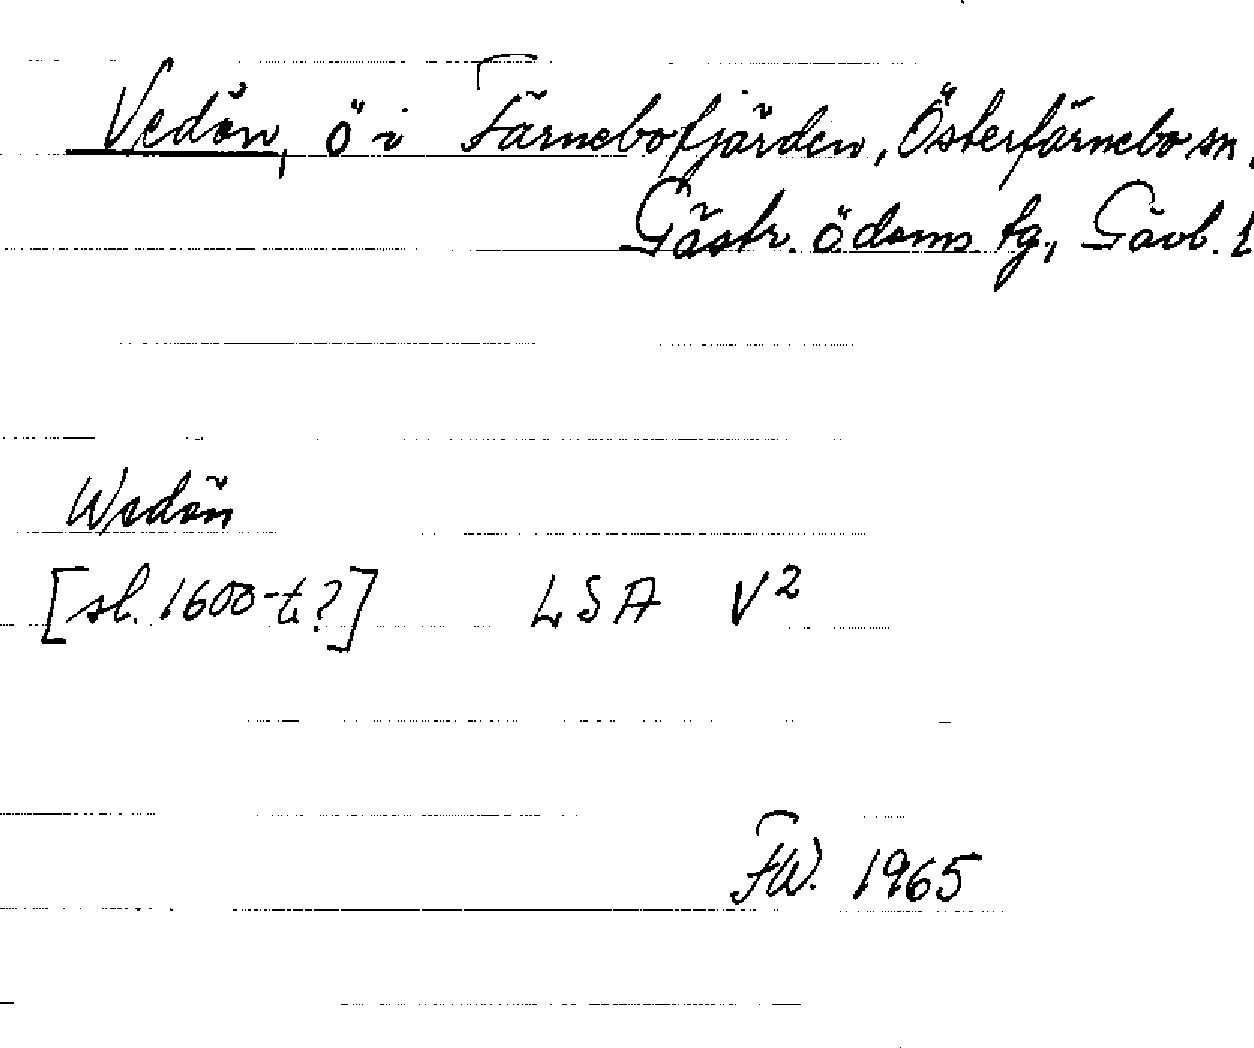 Vedön, ö i Färnebofjärden, Österfärnebo sn,
Gästr. ö doms tg., Gävl. l
Wedön
[sl. 1600-t.?] LSA V2
F.W. 1965